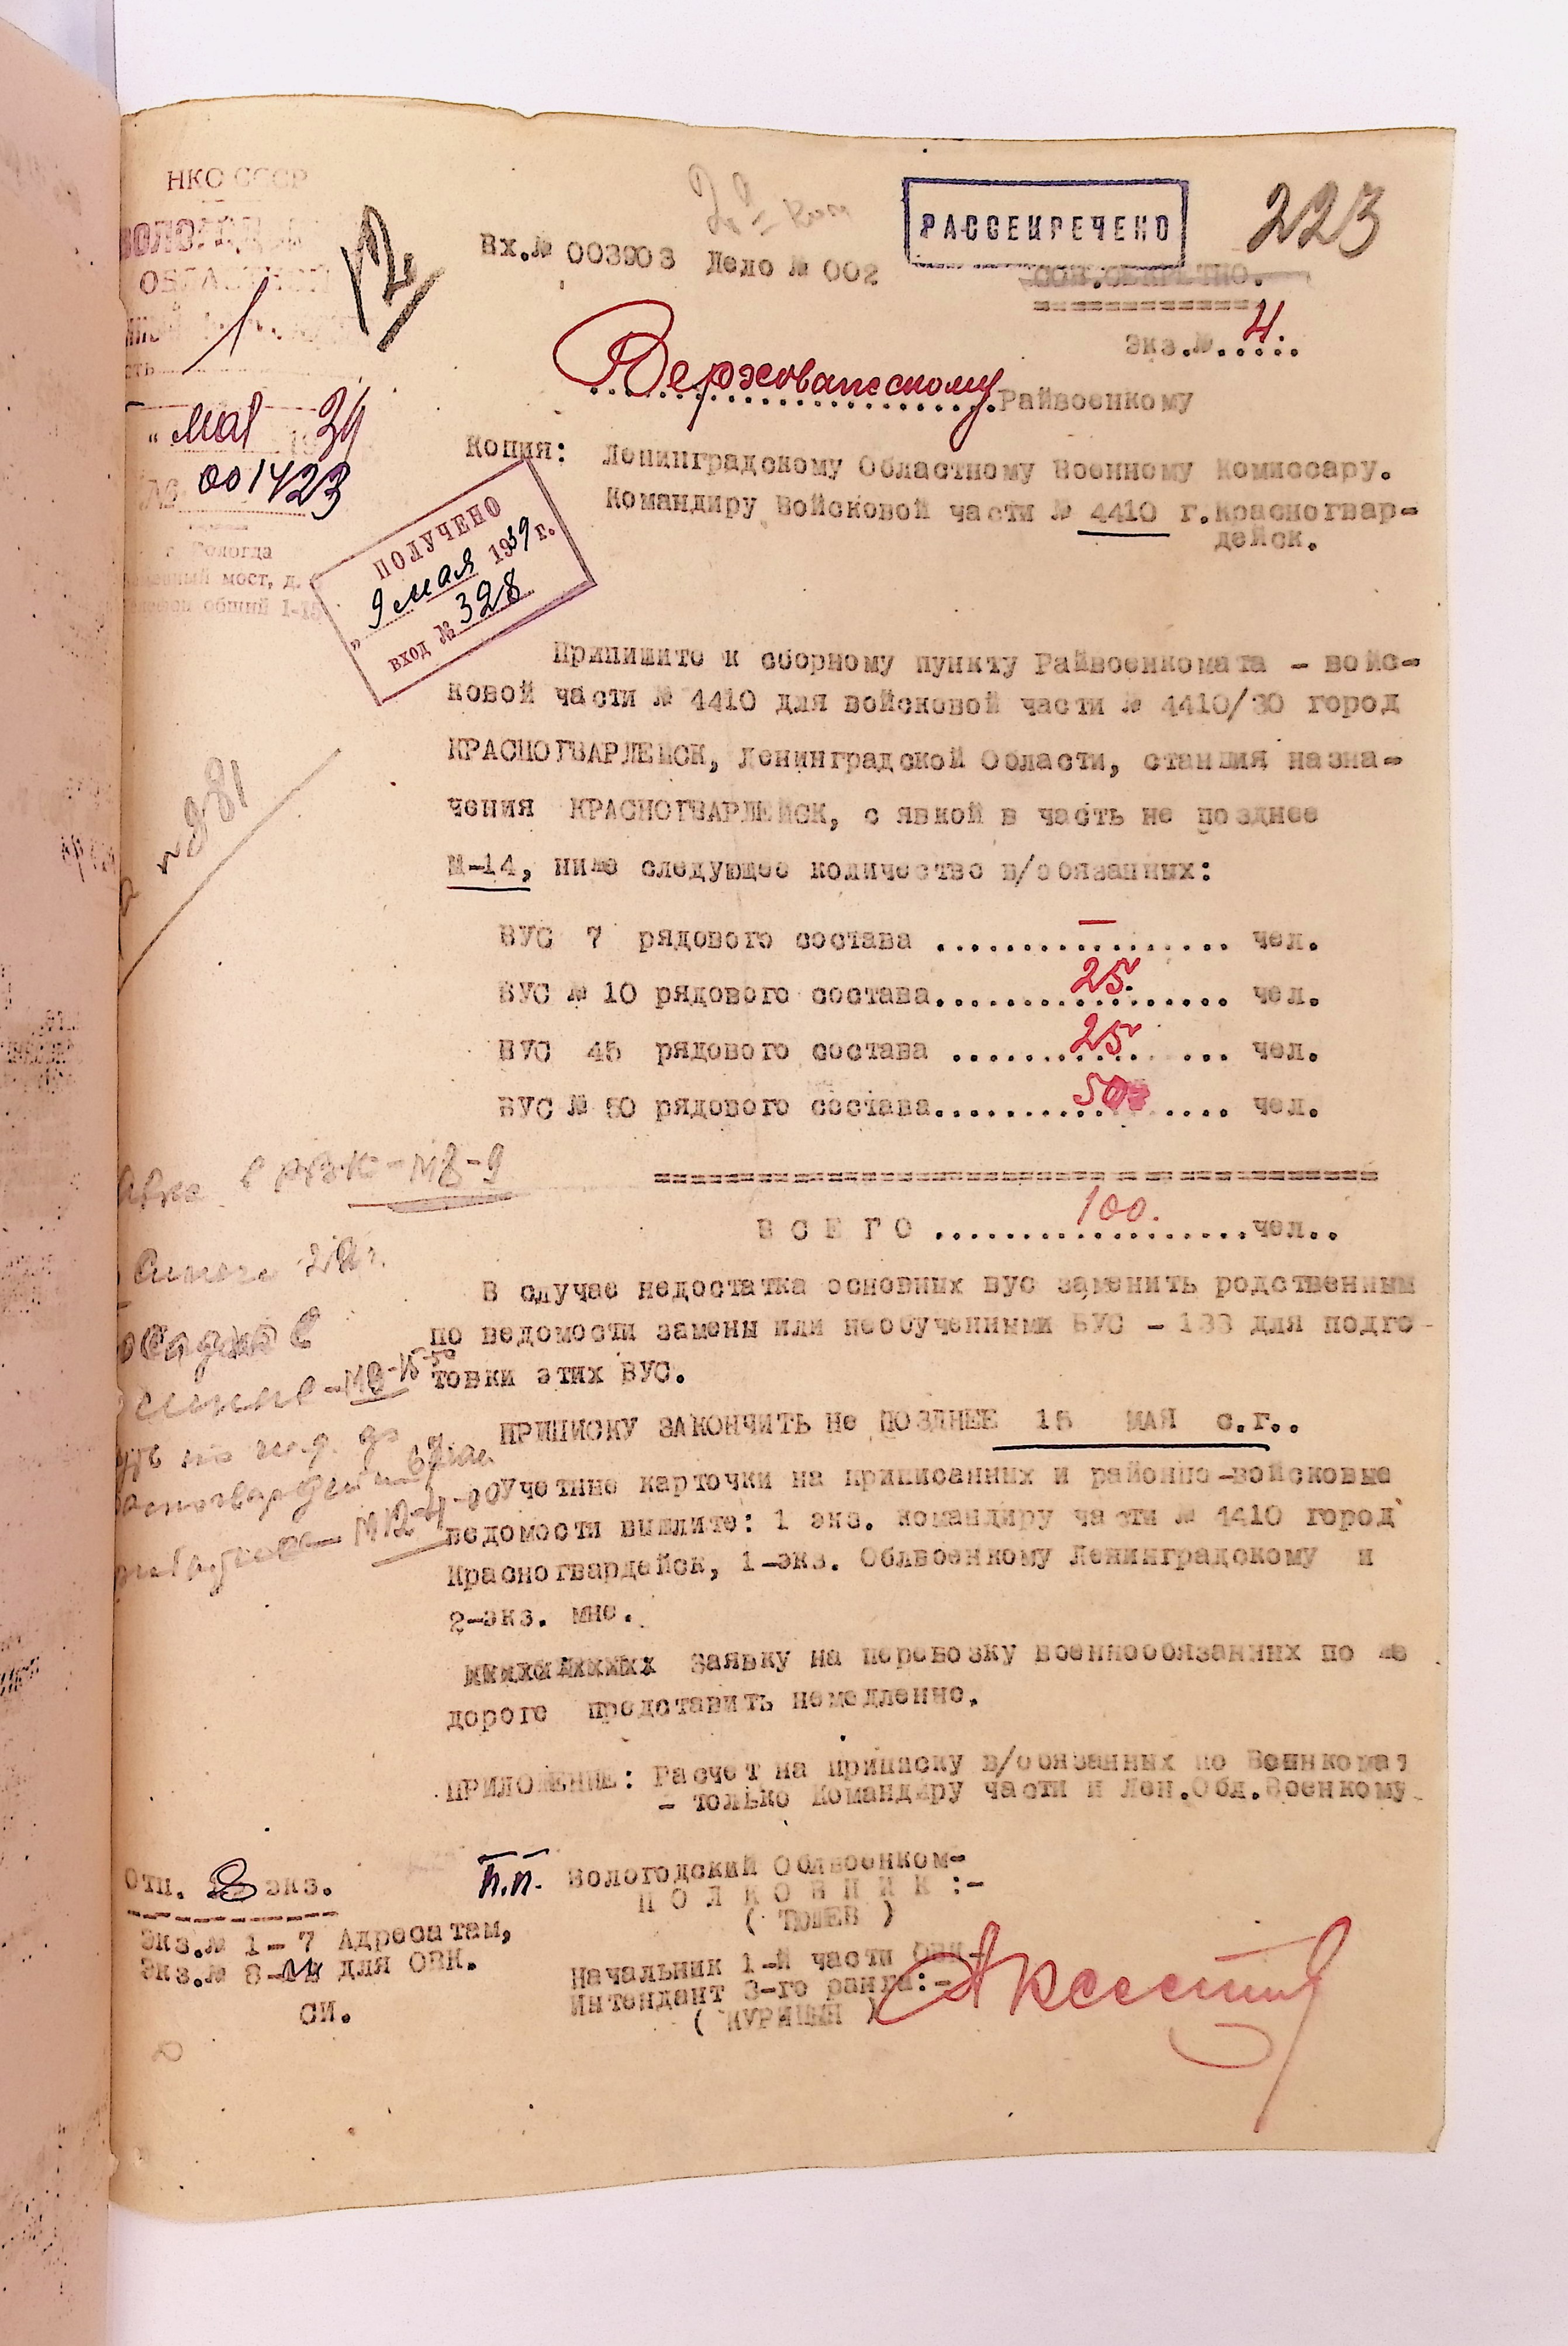 НКО СССР
ВОЛОГОДСКИЙ
ОБЛАСТНОЙ
1
" мая 1939
№ 001423
г. Вологда
мост, д.
общий 1-15
223
РАССЕКРЕЧЕНО
Вх.№ 003903 Дело № 002
СОВ.СЕКРЕТНО.
Экз.№ 4
Верховажскому Райвоенкому
Копия: Ленинградскому Областному Военному Комиссару.
Командиру Войсковой части № 4410 г.Красногвар-
дейск.
ПОЛУЧЕНО
" 9 мая 1939 г.
вход № 328
Припишите к сборному пункту Райвоенкомата - войс-
ковой части № 4410 для войсковой части № 4410/30 город
КРАСНОГВАРДЕЙСК, Ленинградской Области, станция назна-
чения КРАСНОГВАРДЕЙСК, с явкой в часть не позднее
М-14, ниже следующее количество в/обязанных:
ВУС 7 рядового состава ........ — ........ чел.
ВУС № 10 рядового состава........ 25. ........ чел.
ВУС 45 рядового состава ........ 25 ........ чел.
ВУС № 50 рядового состава........ 50 ........ чел.
в РВК - М8-9
В С Е Г О ........ 100. ........чел..
В случае недостатка основных вус заменить родственным
по ведомости замены или необученными ВУС - 133 для подго-
товки этих ВУС.
ПРИПИСКУ ЗАКОНЧИТЬ не ПОЗДНЕЕ 15 МАЯ с.г..
Учетные карточки на приписанных и районно-войсковые
ведомости вышлите: 1 экз. командиру части № 4410 город
Красногвардейск, 1-экз. Облвоенкому Ленинградскому и
2-экз. мне.
Заявку на перевозку военнообязанных по же
дороге представить немедленно.
ПРИЛОЖЕНИЕ: Расчет на приписку в/обязанных по Военкомат
- только Командиру части и Лен.Обл.Военкому.
Отп. 18 экз.
Экз.№ 1-7 Адресатам,
Экз.№ 8- для ОВК.
СИ.
п.п. Вологодский Облвоенком-
П О Л К О В Н И К :-
( ТЮЛЕВ )
Начальник 1-й части ОВК-
Интендант 3-го ранга:-
( КУРИЦЫН )